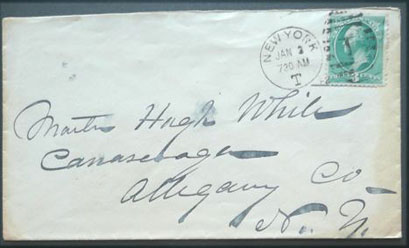 NEW YORK
JAN 2
730 AM
T
Master Hugh White
Canaseraga
Allegany Co
N. Y.